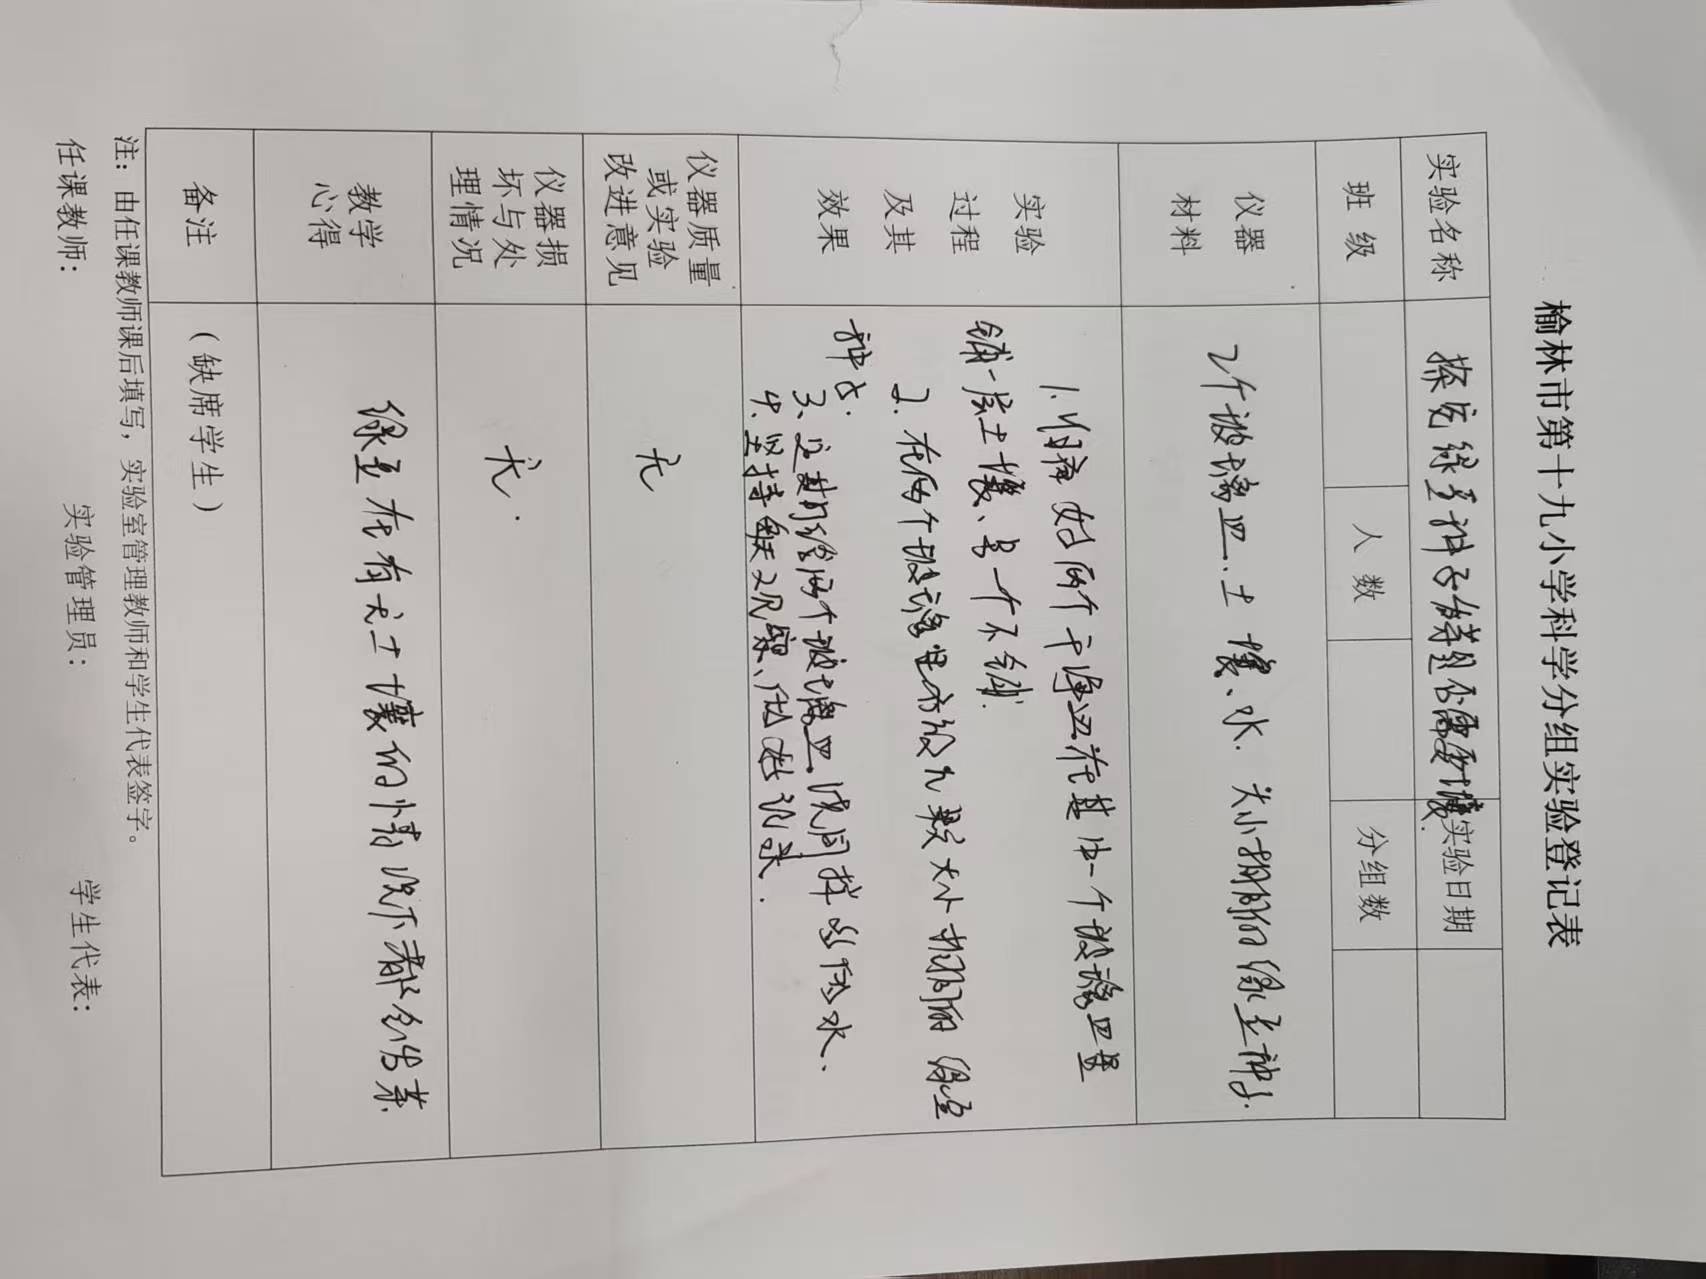 榆林市第十九小学科学分组实验登记表
实验名称 探究绿豆种子发芽是否需要土壤. 实验日期
班 级 人 数 分组数
仪器
材料
2个玻璃皿.土壤、水.大小相同的绿豆种子.
实验
过程
及其
效果
1.准备好两个干净皿在其中一个玻璃皿里
铺一层土壤、另一个不铺.
2.在两个玻璃皿放几颗大小相同的绿豆
种子.
3、定期给两个玻璃皿浇同样多的水.
4.坚持每天观察、做好记录.
仪器质量
或实验
改进意见
无
仪器损
坏与处
理情况
无.
教学
心得
绿豆在有无土壤的情况下都会发芽.
备注 (缺席学生)
注：由任课教师课后填写，实验室管理教师和学生代表签字。
任课教师： 实验管理员： 学生代表：